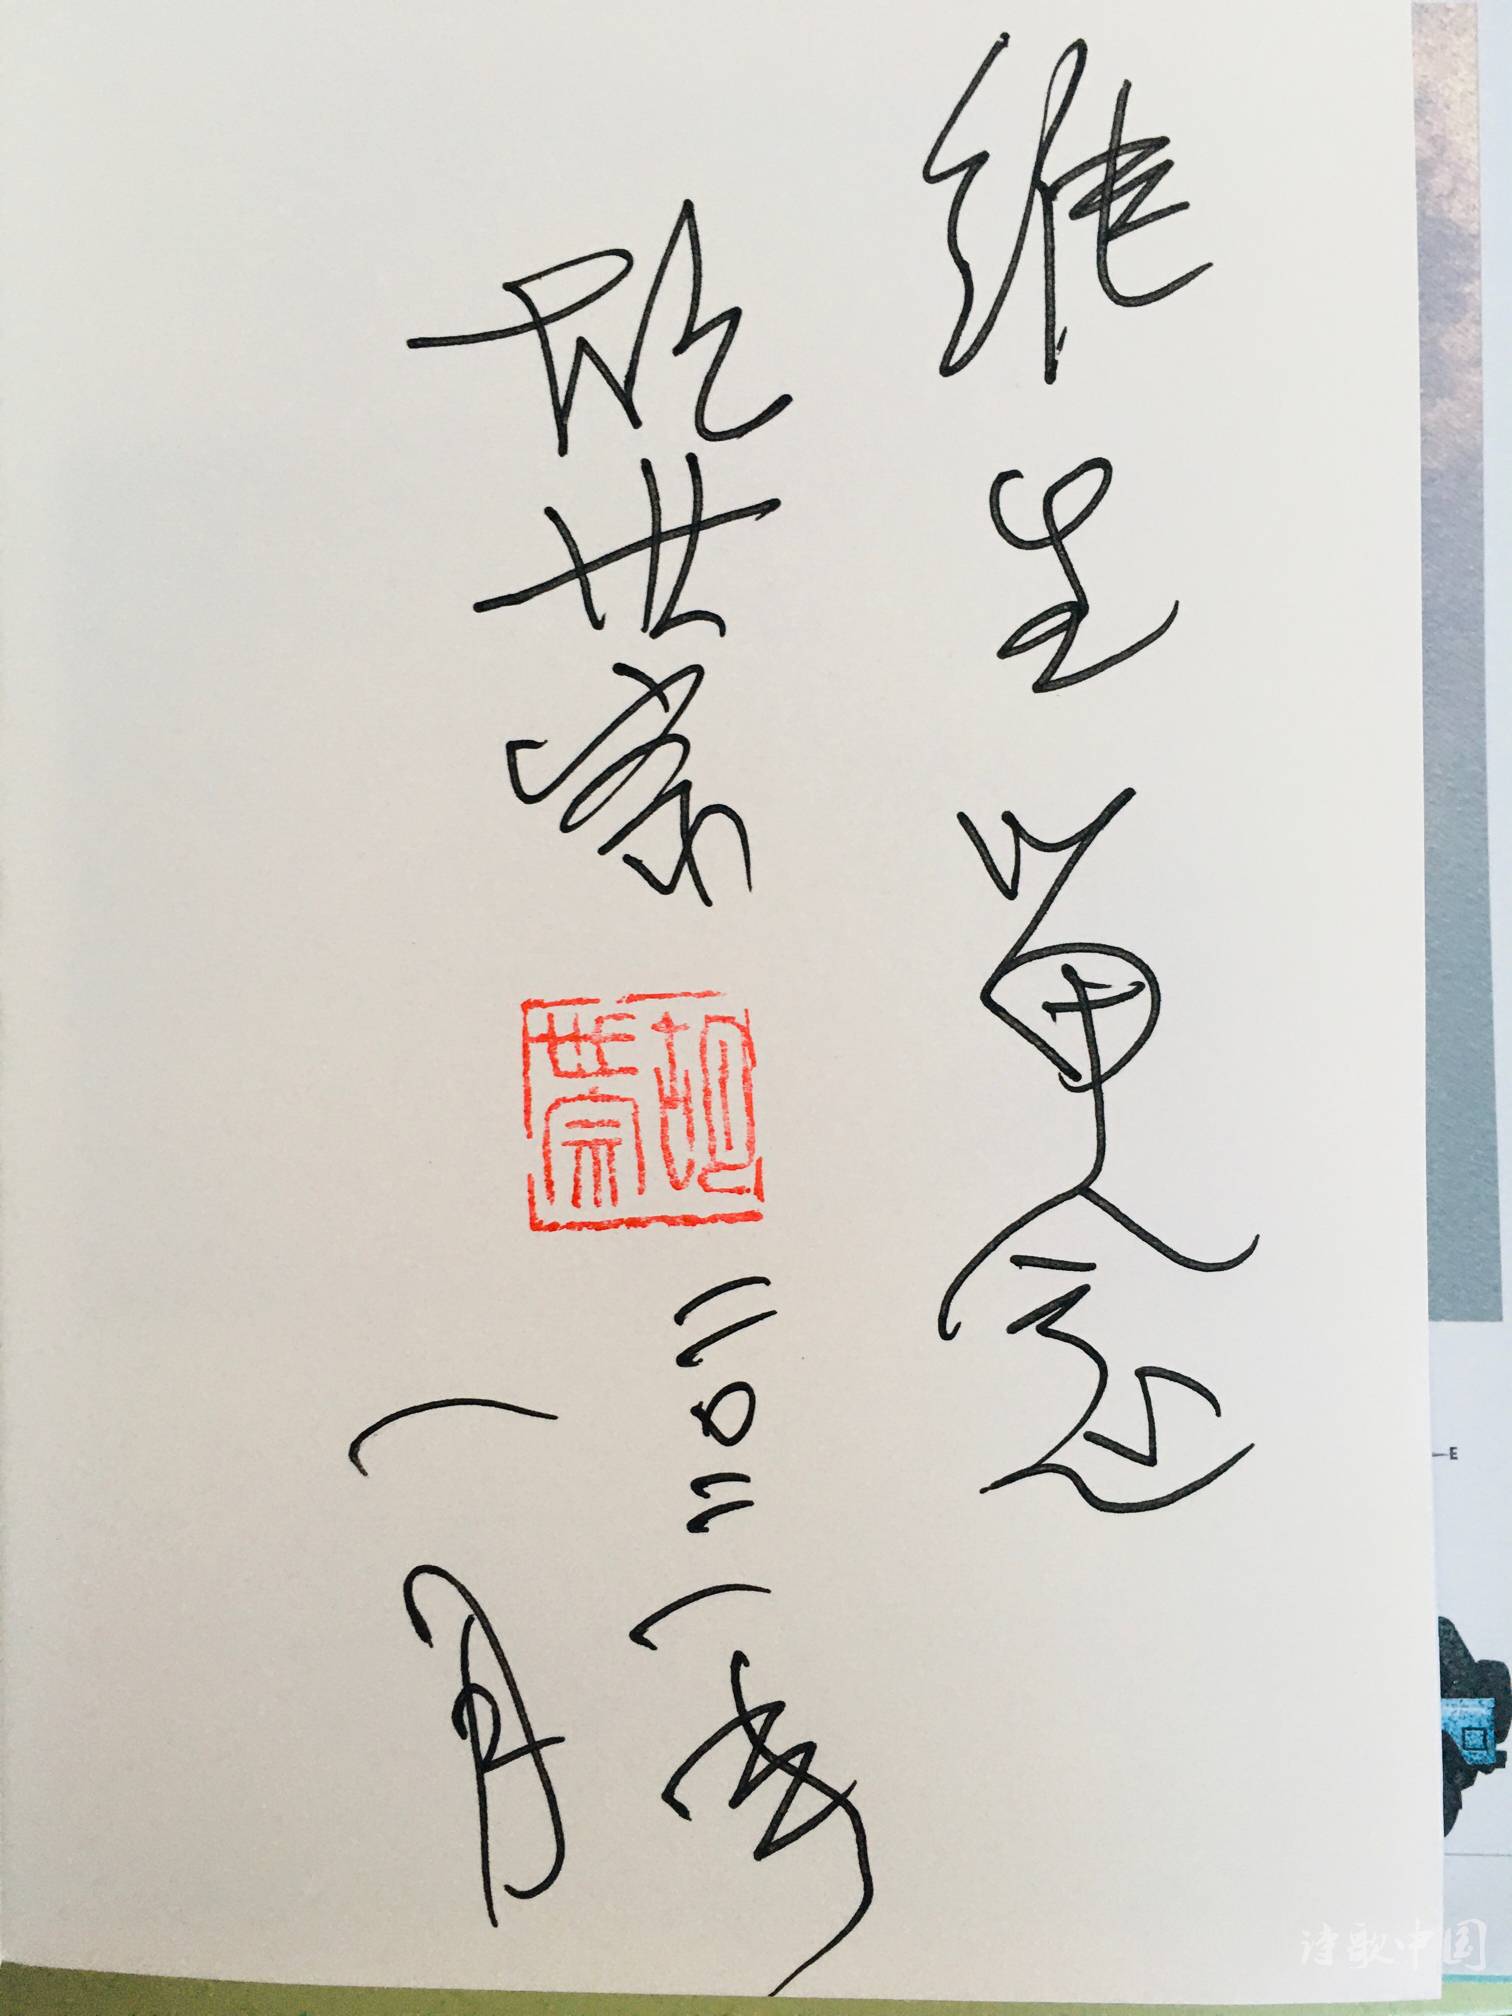 维圣留念
胡世宗
胡世宗
二〇二一年
一月
E
诗歌中国